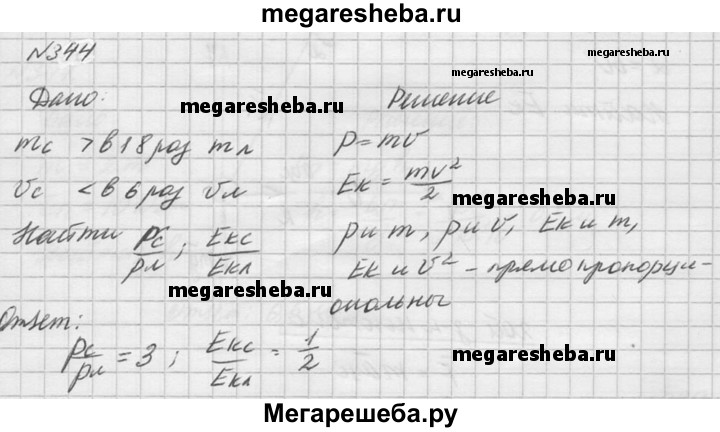 megaresheba.ru
№344
megaresheba.ru
Дано: Решение
megaresheba.ru
mс > в 18 раз mл p = mv
vс < в 6 раз vл Eк = mv²/2
megaresheba.ru
Найти pс/pл ; Eкс/Eкл p и m, p и v, Eк и m,
Eк и v² – прямо пропорци-
megaresheba.ru
ональны
Ответ:
pс/pл = 3 ; Eкс/Eкл = 1/2
megaresheba.ru
Мегарешеба.ру